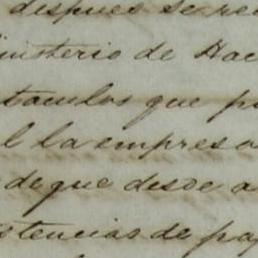 despues se re
inisterio de Hac
taculos que p
l la empresa
deque desde a
tencias de pa